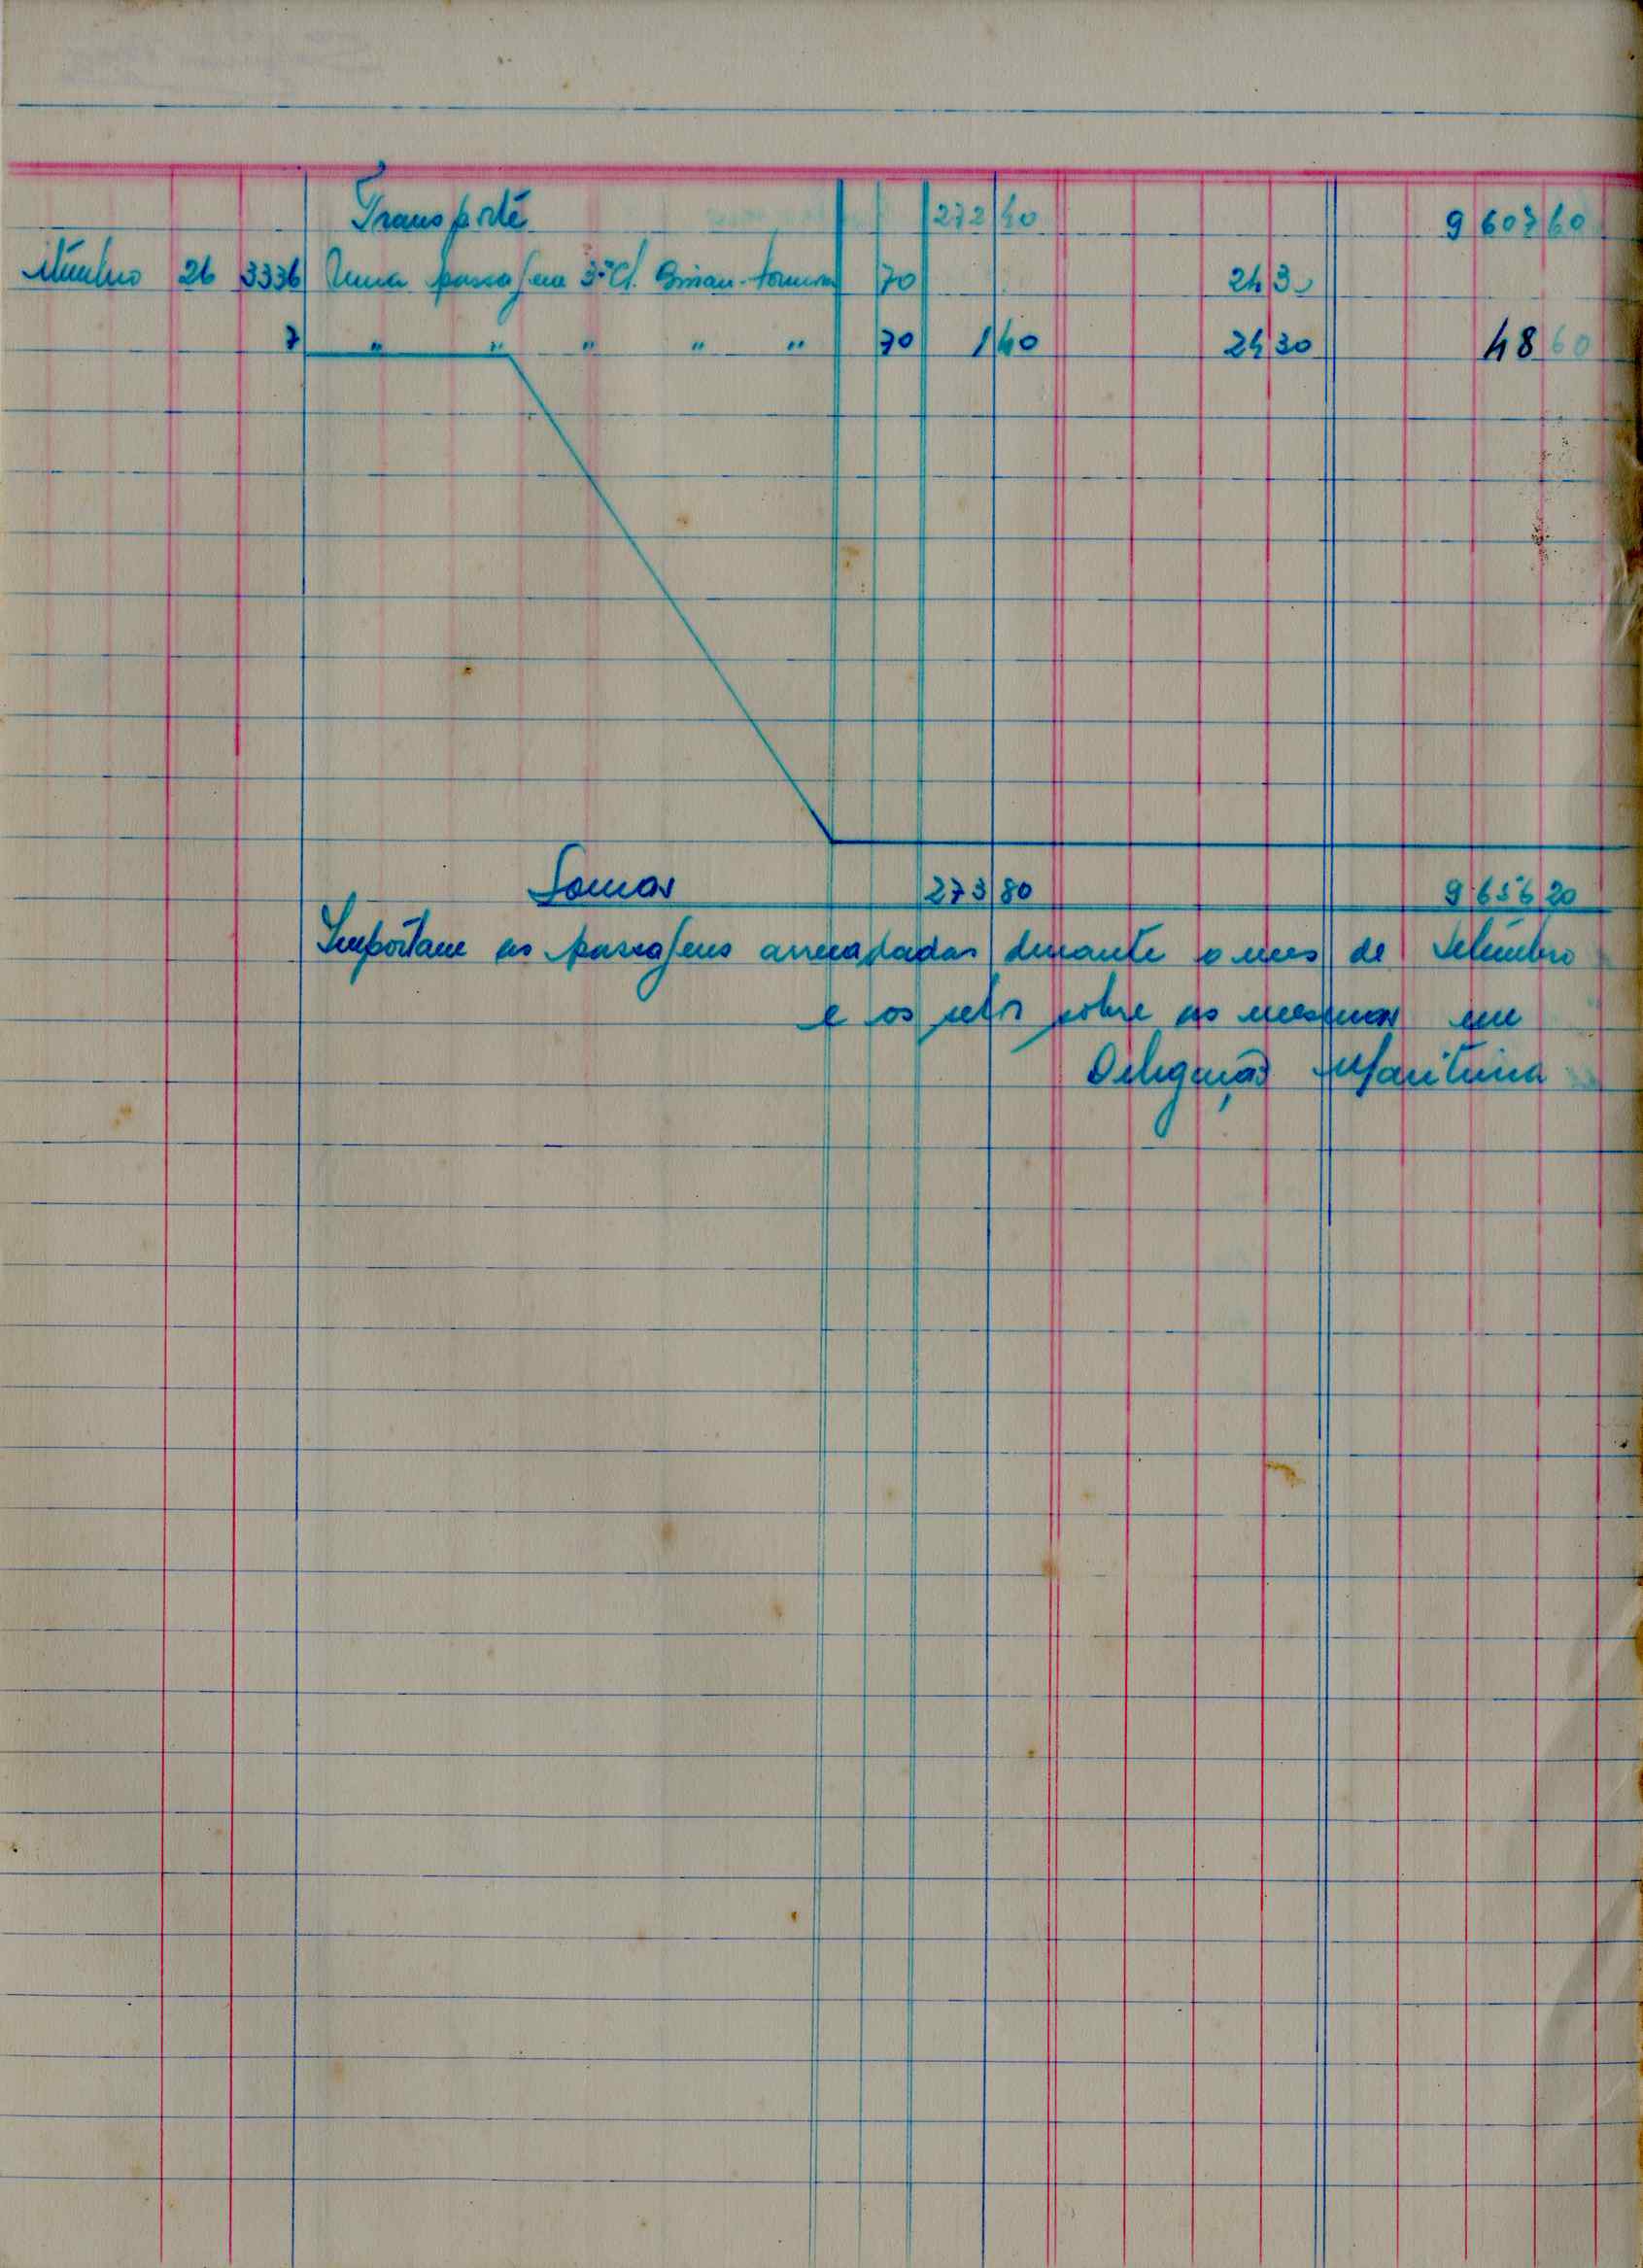 Transporte 272 40 9 607 60
Setembro 26 3336 Uma passagem 3ª Cl. Bissau- 70 24 30
7 " " " " " 70 1 40 24 30 48 60
Somas 273 80 9 656 20
Importam as passagens arrecadadas durante o mes de Setembro
e os selos sobre as mesmas em
Delegação Marítima